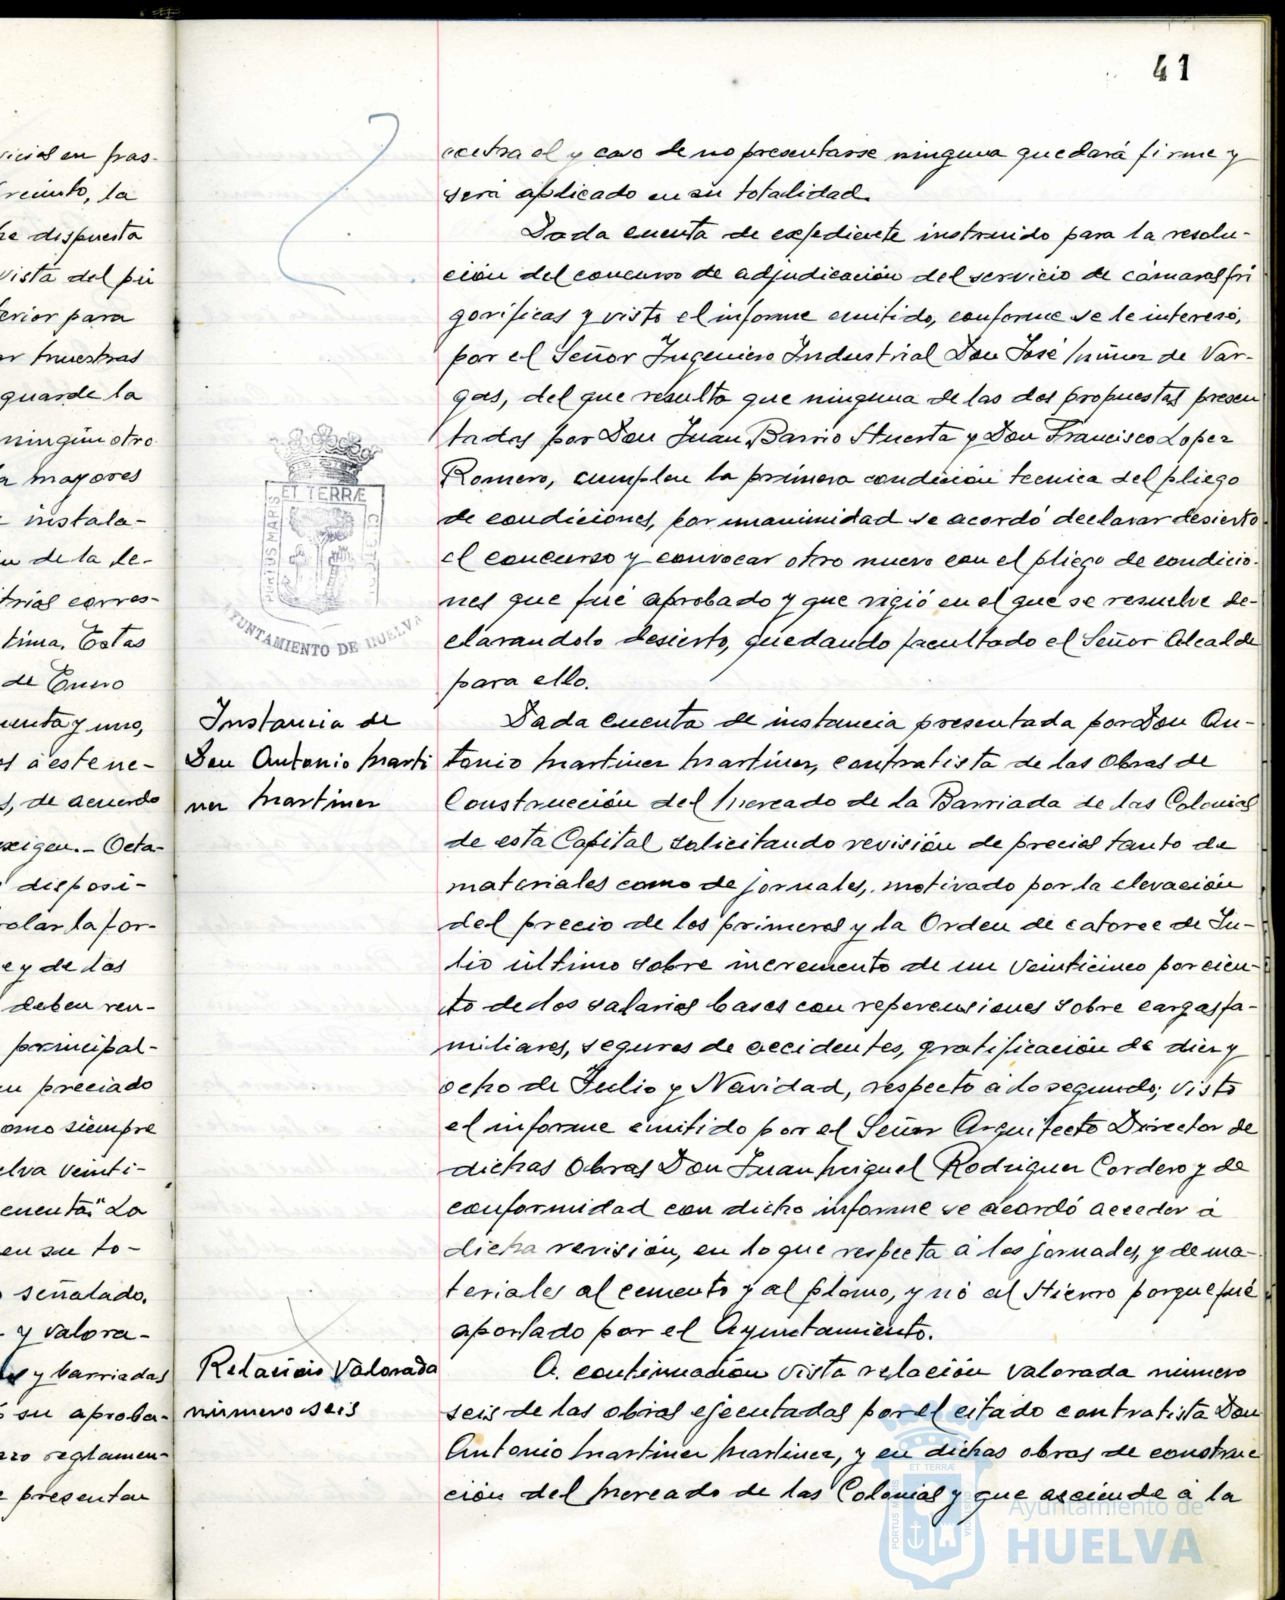 41
contra el y caso de no presentarse ninguna quedará firme y
será aplicado en su totalidad.
Dada cuenta de expediente instruido para la resolu-
ción del concurso de adjudicación del servicio de cámaras fri
goríficas y visto el informe emitido, conforme se le interesó,
por el Señor Ingeniero Industrial Don José Núñez de Var-
gas, del que resulta que ninguna de las dos propuestas presen
tadas por Don Juan Barrio Huerta y Don Francisco Lopez
Romero, cumplen la primera condición tecnica del pliego
de condiciones, por unanimidad se acordó declarar desierto
el concurso y convocar otro nuevo con el pliego de condicio-
nes que fué aprobado y que rigió en el que se resuelve de-
clarandolo desierto, quedando facultado el Señor Alcalde
para ello.
Instancia de
Don Antonio Marti
nez Martinez
Dada cuenta de instancia presentada por Don An-
tonio Martinez Martinez, contratista de las Obras de
Construcción del Mercado de la Barriada de las Colonias
de esta Capital solicitando revisión de precios tanto de
materiales como de jornales, motivado por la elevación
del precio de los primeros y la Orden de catorce de Ju-
lio último sobre incremento de un veinticinco por cien-
to de los salarios bases con repercusiones sobre cargas fa-
miliares, seguros de accidentes, gratificación de diez y
ocho de Julio y Navidad, respecto á lo segundo; visto
el informe emitido por el Señor Arquitecto Director de
dichas Obras Don Juan Miguel Rodriguez Cordero y de
conformidad con dicho informe se acordó acceder á
dicha revisión, en lo que respecta á los jornales, y de ma-
teriales al cemento y al plomo, y nó al Hierro porque fué
aportado por el Ayuntamiento.
Relación Valorada
número seis
A continuación vista relación valorada número
seis de las obras ejecutadas por el citado contratista Don
Antonio Martinez Martinez, y en dichas obras de construc
ción del Mercado de las Colonias y que asciende á la
PORTUS MARIS
ET TERRÆ
CUSTODIA
AYUNTAMIENTO DE HUELVA
Ayuntamiento de
HUELVA